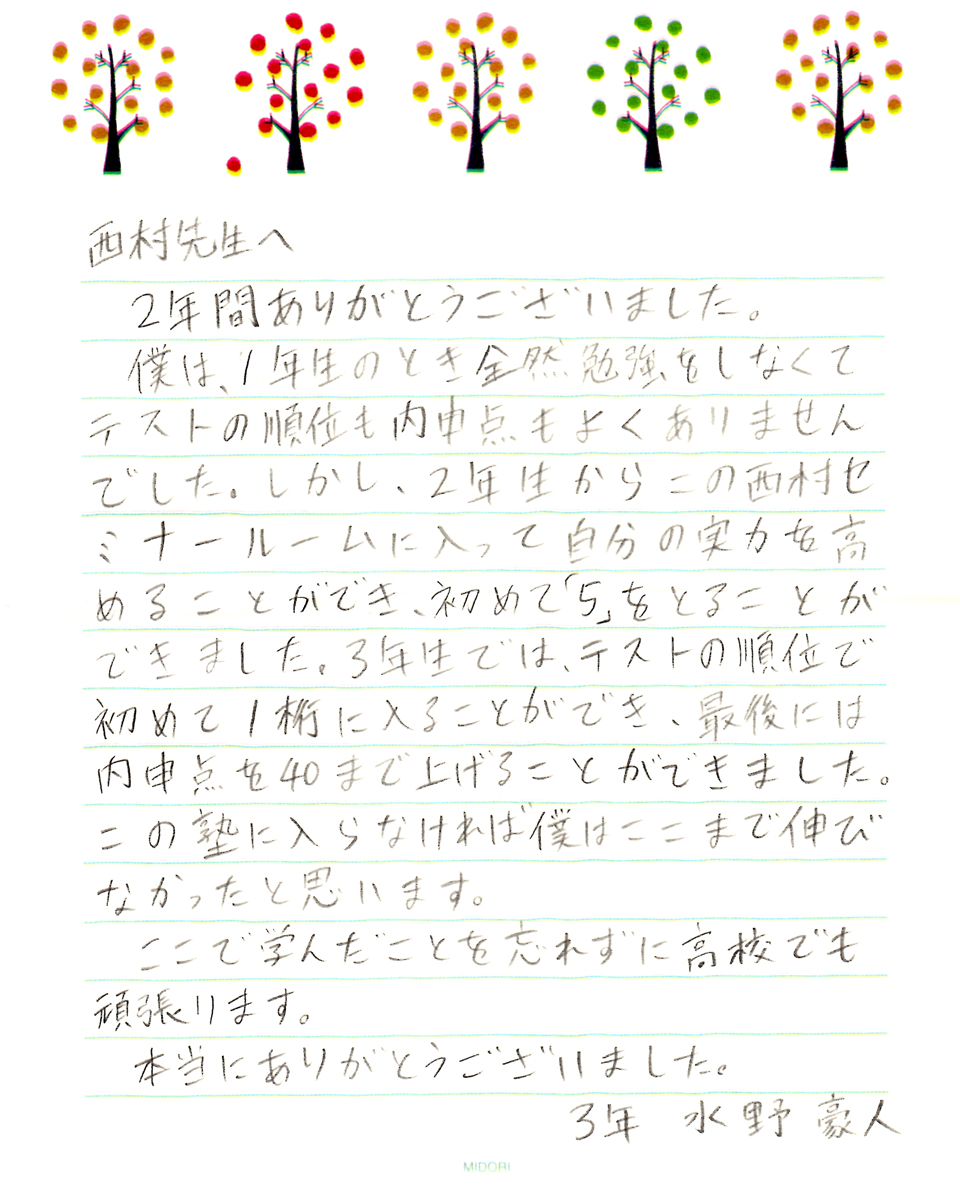 西村先生へ
2年間ありがとうございました。
僕は、1年生のとき全然勉強をしなくて
テストの順位も内申点もよくありません
でした。しかし、2年生からこの西村セ
ミナールームに入って自分の実力を高
めることができ、初めて「5」をとることが
できました。3年生では、テストの順位で
初めて1桁に入ることができ、最後には
内申点を40まで上げることができました。
この塾に入らなければ僕はここまで伸び
なかったと思います。
ここで学んだことを忘れずに高校でも
頑張ります。
本当にありがとうございました。
3年 水野豪人
MIDORI